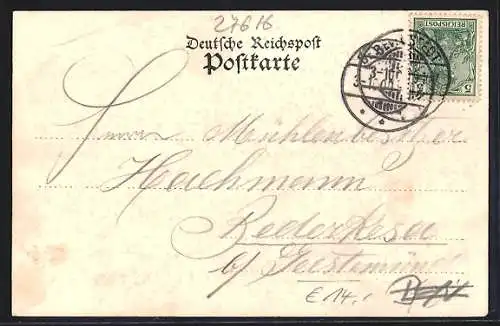 27616
Deutsche Reichspost
Postkarte
REICHSPOST
5
Herrn Mühlenbesitzer
Hachmann
Bederkesa
b/ Geestemünde
€ 14,-